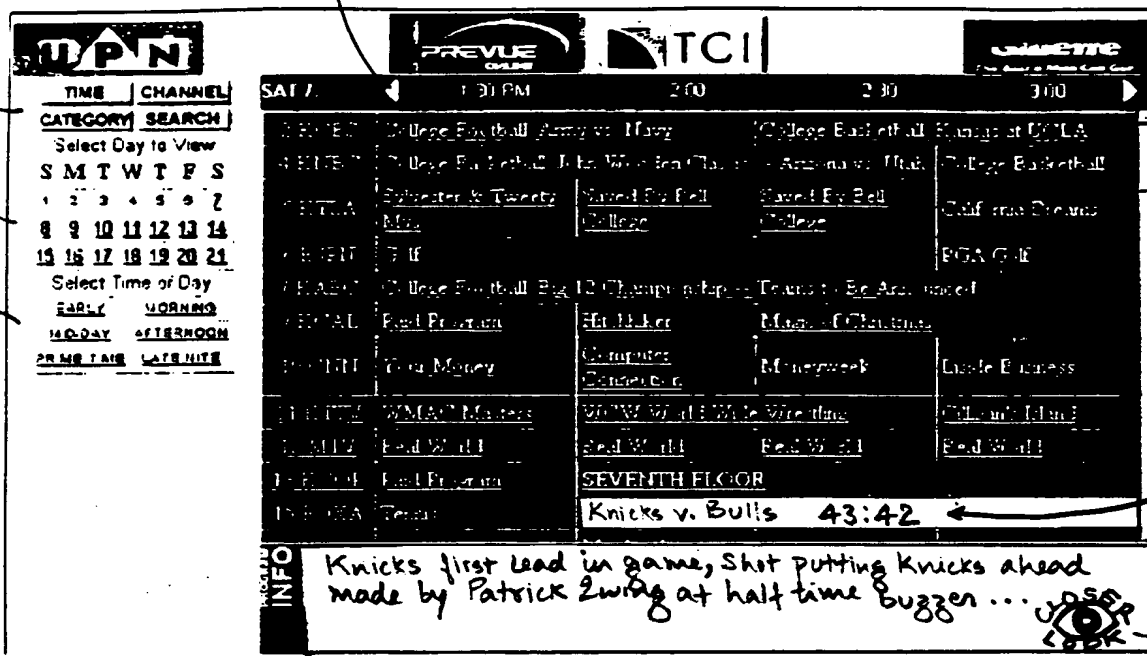 UPN
PREVUE
ONLINE
TCI
TIME CHANNEL
CATEGORY SEARCH
Select Day to View
S M T W T F S
1 2 3 4 5 6 7
8 9 10 11 12 13 14
15 16 17 18 19 20 21
Select Time of Day
EARLY MORNING
MID-DAY AFTERNOON
PRIME TIME LATE NITE
SAT 7 1:30 PM 2:00 2:30 3:00
College Football Army vs. Navy College Basketball Kansas at UCLA
College Basketball John Wooden Classic -- Arizona vs. Utah College Basketball
Sylvester & Tweety Saved By Bell Saved By Bell California Dreams
College College
Golf PGA Golf
College Football Big 12 Championship -- Teams to Be Announced
Paid Program Hitchhiker Magic of Christmas
Your Money Computer Moneyweek Inside Business
Connection
WMAC Masters WCW World Wide Wrestling Gilligan's Island
MTV Real World Real World Real World Real World
Paid Program SEVENTH FLOOR
Tennis Knicks v. Bulls 43:42
INFO
Knicks first Lead in game, Shot putting Knicks ahead
made by Patrick Ewing at half time buzzer ...
LOOK